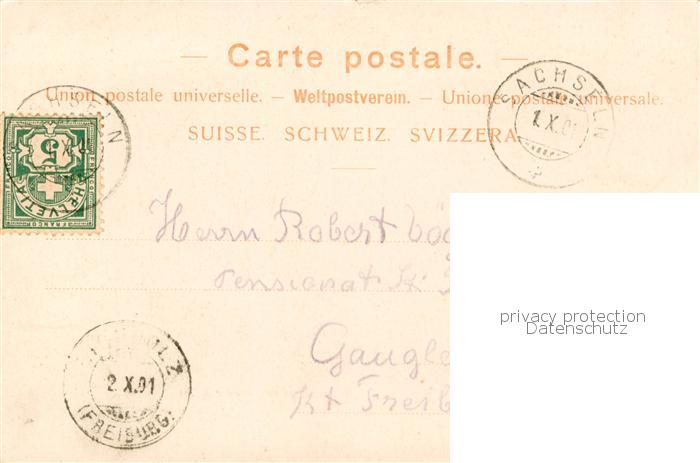 — Carte postale. —
Union postale universelle. — Weltpostverein. — Unione postale universale.
SUISSE. SCHWEIZ. SVIZZERA.
SACHSELN
1.X.01
SELN
X
5
HELVETIA
FRANCO
Herrn Robert
Pensionat St.
privacy protection
Datenschutz
2.X.01
(FREIBURG)
Kt Freib